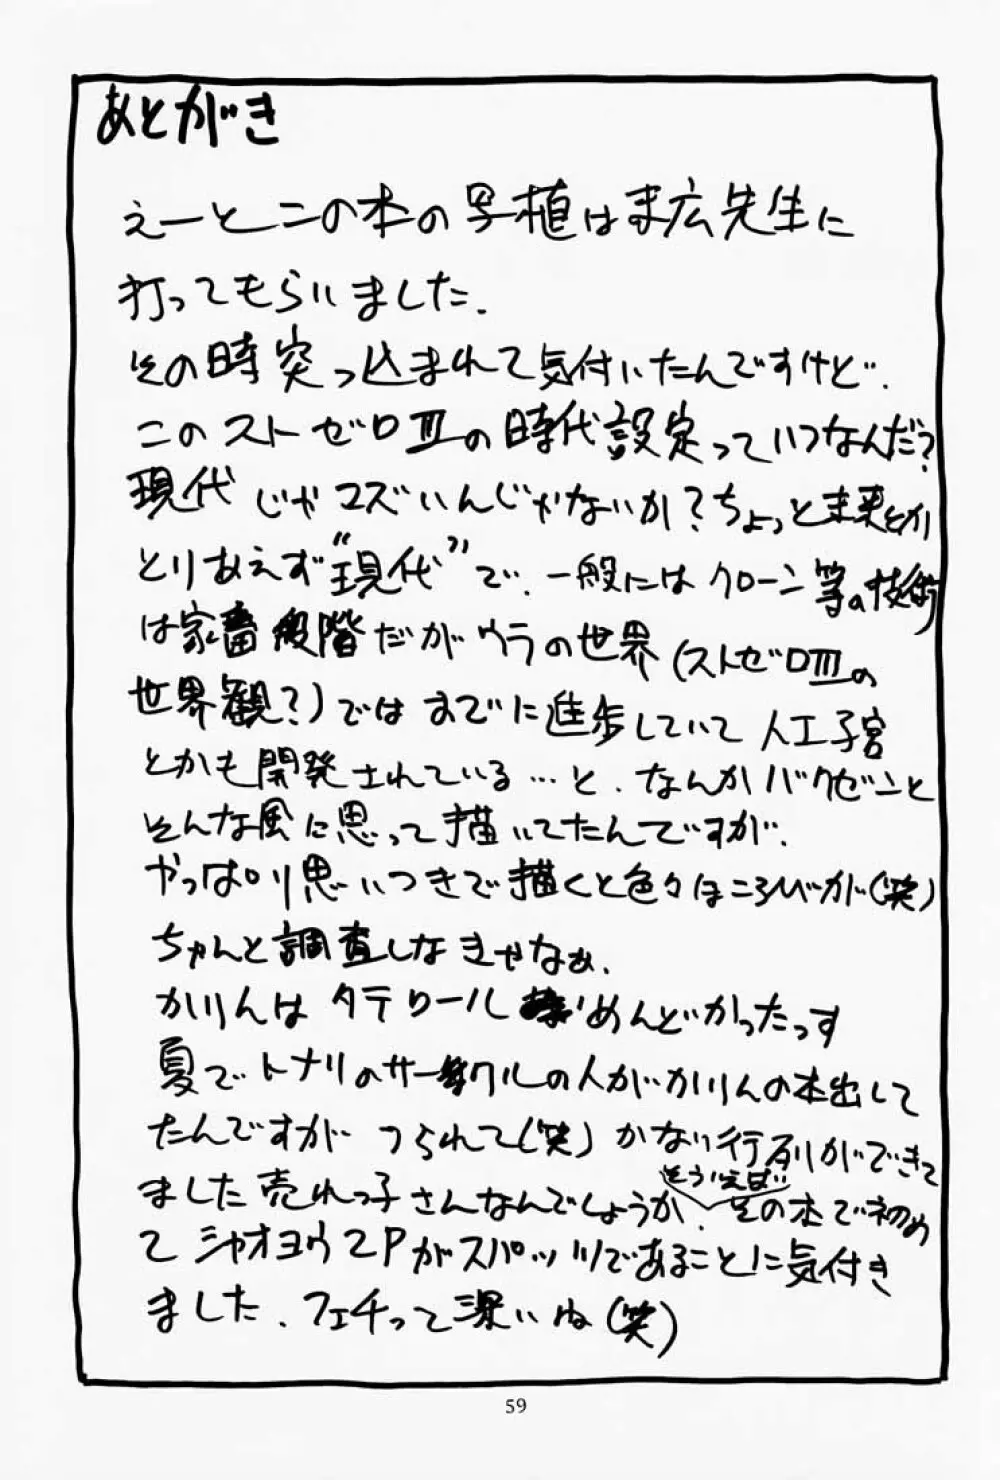 あとがき
えーとこの本の写植はま広先生に
打ってもらいました.
その時突っ込まれて気付いたんですけど.
このストゼロⅢの時代設定っていつなんだ?
現代じゃマズいんじゃないか?ちょっと未来とか
とりあえず"現代"で.一般にはクローン等の技術
は家畜段階だがウラの世界(ストゼロⅢの
世界観?)ではすでに進歩していて人工子宮
とかも開発されている…と.なんかバクゼンと
そんな風に思って描いてたんですが.
やっぱり思いつきで描くと色々ほころびが(笑)
ちゃんと調査しなきゃなぁ.
かりんはタテロールめんどかったっす
夏でトナリのサークルの人がかりんの本出して
たんですがつられて(笑)かない行列ができて
ました売れっ子さんなんでしょうか.そういえばその本で初め
てシャオヨウ2Pがスパッツであることに気付き
ました.フェチって深いね(笑)
59